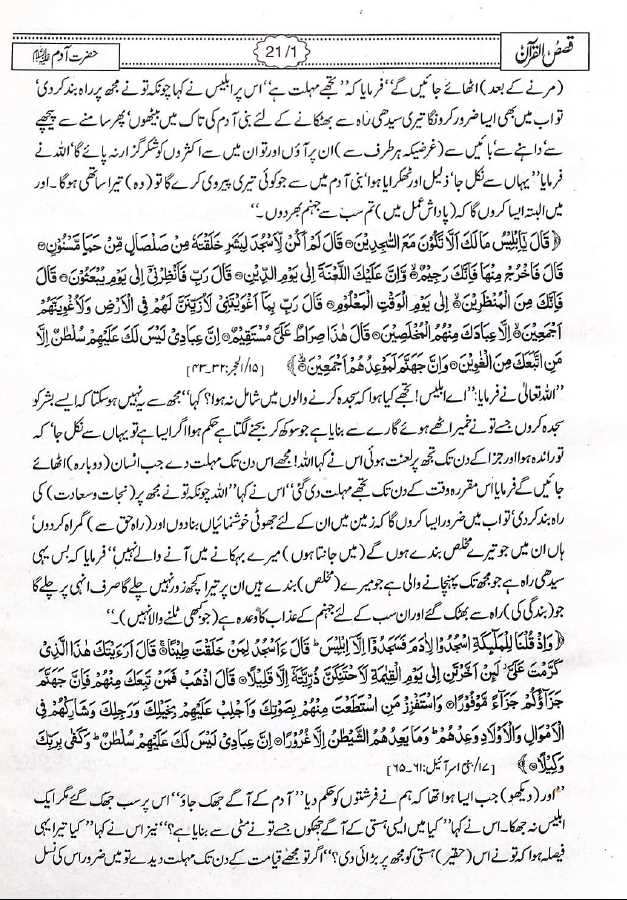 قصصُ القرآن
21/1
حضرت آدم علیہ السلام
(مرنے کے بعد) اٹھائے جائیں گے“ فرمایا کہ ”تجھے مہلت ہے“ اس پر ابلیس نے کہا چونکہ تو نے مجھ پر راہ بند کر دی‘
تو اب میں بھی ایسا ضرور کرونگا تیری سیدھی راہ سے بھٹکانے کے لئے بنی آدم کی تاک میں بیٹھوں‘ پھر سامنے سے پیچھے
سے‘ داہنے سے‘ بائیں سے (غرضیکہ ہر طرف سے) ان پر آؤں اور تو ان میں سے اکثروں کو شکر گزار نہ پائے گا‘ اللہ نے
فرمایا ”یہاں سے نکل جا‘ ذلیل اور ٹھکرایا ہوا‘ بنی آدم میں سے جو کوئی تیری پیروی کرے گا تو (وہ) تیرا ساتھی ہوگا۔ اور
میں البتہ ایسا کروں گا کہ (پاداش عمل میں) تم سب سے جہنم بھر دوں۔“
﴿ قَالَ يٰٓاِبْلِيْسُ مَا لَكَ اَلَّا تَكُوْنَ مَعَ السّٰجِدِيْنَ۝ قَالَ لَمْ اَكُنْ لِّاَسْجُدَ لِبَشَرٍ خَلَقْتَهٗ مِنْ صَلْصَالٍ مِّنْ حَمَاٍ مَّسْنُوْنٍ۝
قَالَ فَاخْرُجْ مِنْهَا فَاِنَّكَ رَجِيْمٌ۝ وَّاِنَّ عَلَيْكَ اللَّعْنَةَ اِلٰى يَوْمِ الدِّيْنِ۝ قَالَ رَبِّ فَاَنْظِرْنِيْٓ اِلٰى يَوْمِ يُبْعَثُوْنَ۝ قَالَ
فَاِنَّكَ مِنَ الْمُنْظَرِيْنَ۝ اِلٰى يَوْمِ الْوَقْتِ الْمَعْلُوْمِ۝ قَالَ رَبِّ بِمَآ اَغْوَيْتَنِيْ لَاُزَيِّنَنَّ لَهُمْ فِي الْاَرْضِ وَلَاُغْوِيَنَّهُمْ
اَجْمَعِيْنَ۝ اِلَّا عِبَادَكَ مِنْهُمُ الْمُخْلَصِيْنَ۝ قَالَ هٰذَا صِرَاطٌ عَلَيَّ مُسْتَقِيْمٌ۝ اِنَّ عِبَادِيْ لَيْسَ لَكَ عَلَيْهِمْ سُلْطٰنٌ اِلَّا
مَنِ اتَّبَعَكَ مِنَ الْغٰوِيْنَ۝ وَاِنَّ جَهَنَّمَ لَمَوْعِدُهُمْ اَجْمَعِيْنَ۝ ﴾ [١٥/الحجر:٣٢۔٤٣]
”اللہ تعالیٰ نے فرمایا: ”اے ابلیس! تجھے کیا ہوا کہ سجدہ کرنے والوں میں شامل نہ ہوا؟ کہا‘ ”مجھ سے یہ نہیں ہوسکتا کہ ایسے بشر کو
سجدہ کروں جسے تو نے خمیر اٹھے ہوئے گارے سے بنایا ہے جو سوکھ کر بجنے لگتا ہے حکم ہوا اگر ایسا ہے تو یہاں سے نکل جا‘ کہ
تو راندہ ہوا اور جزا کے دن تک تجھ پر لعنت ہوئی اس نے کہا اللہ! مجھے اس دن تک مہلت دے جب انسان (دوبارہ) اٹھائے
جائیں گے فرمایا اس مقررہ وقت کے دن تک تجھے مہلت دی گئی‘ ”اس نے کہا‘ ”اللہ چونکہ تو نے مجھ پر (نجات وسعادت) کی
راہ بند کر دی‘ تو اب میں ضرور ایسا کروں گا کہ زمین میں ان کے لئے جھوٹی خوشنمائیاں بنا دوں اور (راہ حق سے) گمراہ کردوں‘
ہاں ان میں جو تیرے مخلص بندے ہوں گے (میں جانتا ہوں) میرے بہکانے میں آنے والے نہیں‘‘ فرمایا کہ بس یہی
سیدھی راہ ہے جو مجھ تک پہنچانے والی ہے جو میرے (مخلص) بندے ہیں ان پر تیرا کچھ زور نہیں چلے گا صرف انہی پر چلے گا
جو (بندگی کی) راہ سے بھٹک گئے اور ان سب کے لئے جہنم کے عذاب کا وعدہ ہے (جو کبھی ٹلنے والا نہیں)۔“
﴿ وَاِذْ قُلْنَا لِلْمَلٰٓئِكَةِ اسْجُدُوْا لِاٰدَمَ فَسَجَدُوْٓا اِلَّآ اِبْلِيْسَ ؕ قَالَ ءَاَسْجُدُ لِمَنْ خَلَقْتَ طِيْنًا۝ قَالَ اَرَءَيْتَكَ هٰذَا الَّذِيْ
كَرَّمْتَ عَلَيَّ ۡ لَىِٕنْ اَخَّرْتَنِ اِلٰى يَوْمِ الْقِيٰمَةِ لَاَحْتَنِكَنَّ ذُرِّيَّتَهٗٓ اِلَّا قَلِيْلًا۝ قَالَ اذْهَبْ فَمَنْ تَبِعَكَ مِنْهُمْ فَاِنَّ جَهَنَّمَ
جَزَآؤُكُمْ جَزَآءً مَّوْفُوْرًا۝ وَاسْتَفْزِزْ مَنِ اسْتَطَعْتَ مِنْهُمْ بِصَوْتِكَ وَاَجْلِبْ عَلَيْهِمْ بِخَيْلِكَ وَرَجِلِكَ وَشَارِكْهُمْ فِي
الْاَمْوَالِ وَالْاَوْلَادِ وَعِدْهُمْ ؕ وَمَا يَعِدُهُمُ الشَّيْطٰنُ اِلَّا غُرُوْرًا۝ اِنَّ عِبَادِيْ لَيْسَ لَكَ عَلَيْهِمْ سُلْطٰنٌ ؕ وَكَفٰى بِرَبِّكَ
وَكِيْلًا۝ ﴾ [١٧/بنی اسرآئیل:٦١۔٦٥]
”اور (دیکھو) جب ایسا ہوا تھا کہ ہم نے فرشتوں کو حکم دیا‘ ”آدم کے آگے جھک جاؤ“ اس پر سب جھک گئے مگر ایک
ابلیس نہ جھکا۔ اس نے کہا‘ ”کیا میں ایسی ہستی کے آگے جھکوں جسے تو نے مٹی سے بنایا ہے؟“ نیز اس نے کہا‘ ”کیا تیرا یہی
فیصلہ ہوا کہ تو نے اس (حقیر) ہستی کو مجھ پر بڑائی دی؟“ اگر تو مجھے قیامت کے دن تک مہلت دیدے تو میں ضرور اس کی نسل